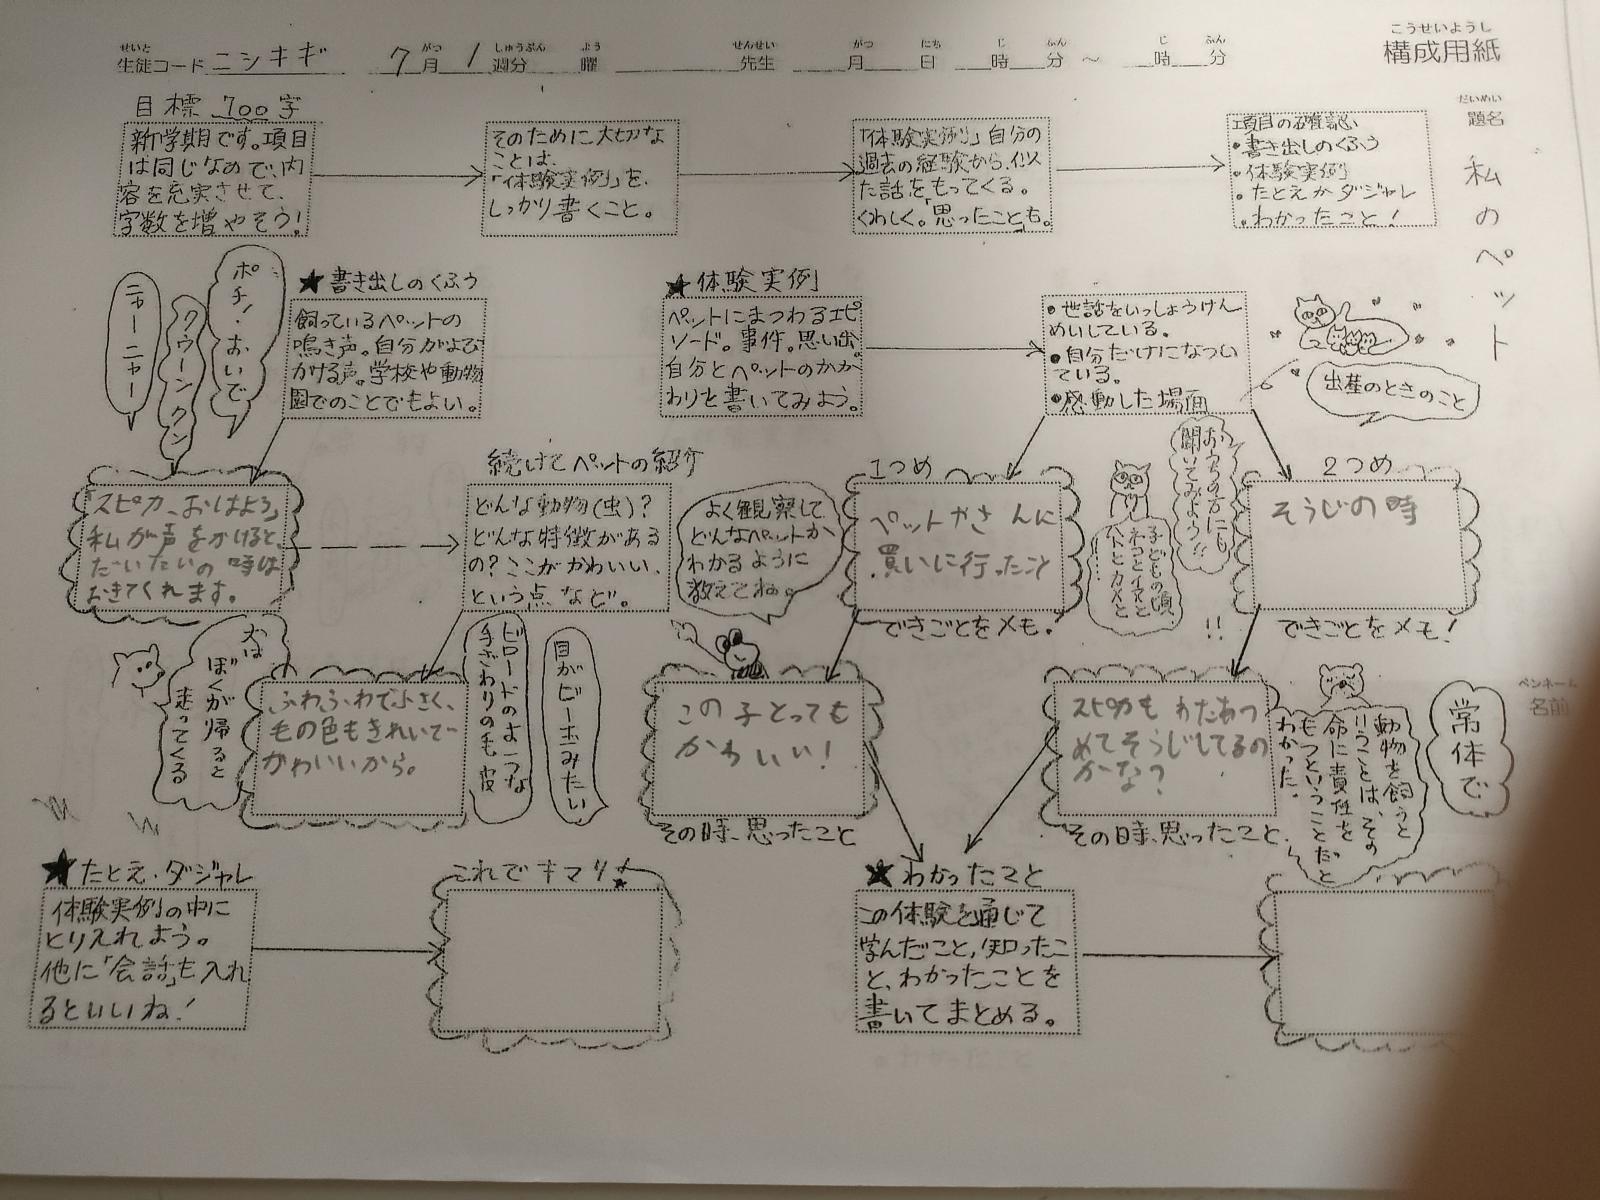 こうせいようし
構成用紙
せいと がつ しゅうぶん よう せんせい がつ にち じ ふん じ ふん
生徒コード ニシキギ 7月 1週分 曜 先生 月 日 時 分 ～ 時 分
だいめい
題名
私のペット
ペンネーム
名前
目標 700字
新学期です。項目
は同じなので、内
容を充実させて、
字数を増やそう!
そのために大切な
ことは、
「体験実例」を、
しっかり書くこと。
「体験実例」自分の
過去の経験から、似
た話をもってくる。
くわしく。「思ったことも。
項目の確認
・書き出しのくふう
・体験実例
・たとえかダジャレ
・わかったこと!
ポチ!おいで
クウーンクン
ニャーニャー
★書き出しのくふう
飼っているペットの
鳴き声。自分がよび
かける声。学校や動物
園でのことでもよい。
★体験実例
ペットにまつわるエピ
ソード。事件。思い出。
自分とペットのかか
わりを書いてみよう。
・世話をいっしょうけん
めいしている。
・自分だけになつい
ている。
・感動した場面
出産のときのこと
「スピカ、おはよう」
私が声をかけると、
だいたいの時は
おきてくれます。
続けてペットの紹介
どんな動物(虫)?
どんな特徴がある
の?ここがかわいい、
という点など。
よく観察して
どんなペットか
わかるように
教えてね。
1つめ
ペットやさんに
買いに行ったこと
できごとをメモ!
おうちの方にも
聞いてみよう!!
子どもの頃、
ネコとイヌと
ヘビとカメと
……!!
2つめ
そうじの時
できごとをメモ!
犬は
ぼくが帰ると
走ってくる
ふわふわで小さく、
毛の色もきれいで
かわいいから。
ビロードのような
手ざわりの毛皮
目がビー玉みたい
この子とっても
かわいい!
その時、思ったこと
スピカも わたあつ
めてそうじしてるの
かな?
その時、思ったこと
動物を飼うと
いうことは、その
命に責任を
もつということだと
わかった。
常体で
★たとえ・ダジャレ
体験実例の中に
とり入れよう。
他に「会話」も入れ
るといいね!
これでキマリ!
★わかったこと
この体験を通じて
学んだこと、知ったこ
と、わかったことを
書いてまとめる。